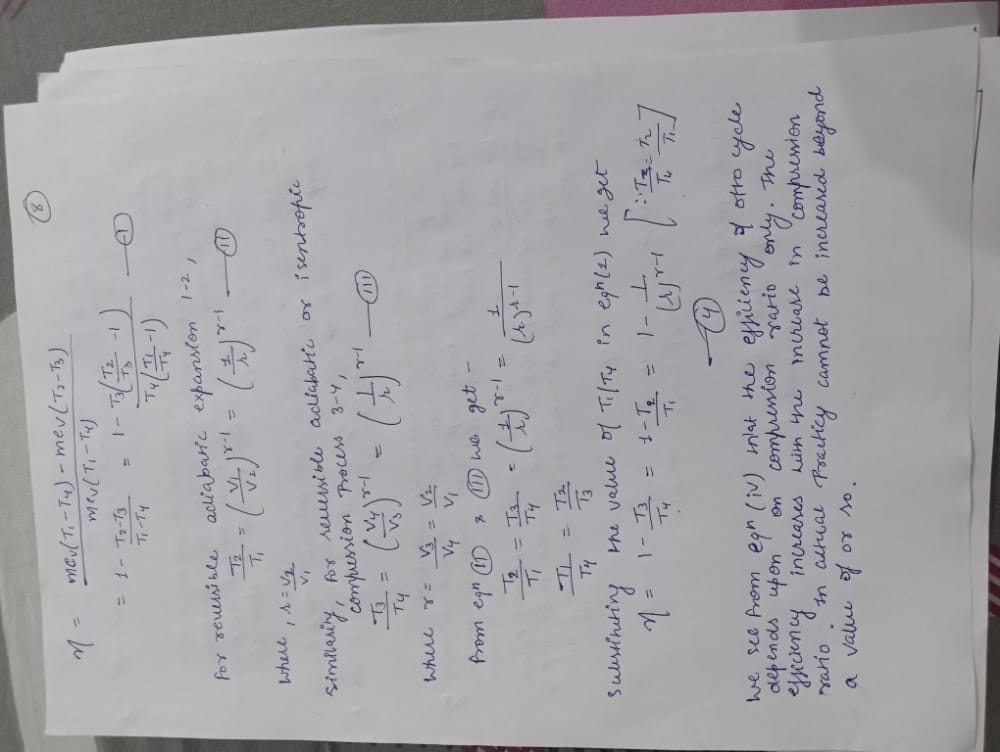 8
η = mcv(T1-T4) - mcv(T2-T3) / mcv(T1-T4)
= 1 - T2-T3 / T1-T4 = 1 - T3(T2/T3 - 1) / T4(T1/T4 - 1) — 1
for reversible adiabatic expansion 1-2,
T2/T1 = (V1/V2)^γ-1 = (1/r)^γ-1 — II
Where, r = V2/V1
Similarity, for reversible adiabatic or isentropic
compression Process 3-4,
T3/T4 = (V4/V3)^γ-1 = (1/r)^γ-1 — III
Where r = V3/V4 = V2/V1
from eqn II & III we get -
T2/T1 = T3/T4 = (1/r)^γ-1 = 1/(r)^γ-1
T1/T4 = T2/T3
Substituting the value of T1/T4 in eqn(1) we get
η = 1 - T3/T4 = 1 - T2/T1 = 1 - 1/(r)^γ-1 [∵ T3/T4 = T2/T1]
— 4
We see from eqn (iv) that the efficiency of otto cycle
depends upon on compression ratio only. The
efficiency increases with the increase in compression
ratio. In actual Practicy cannot be increased beyond
a value of or so.